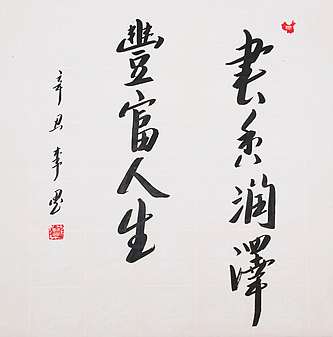 書香润澤
豐富人生
辛丑李